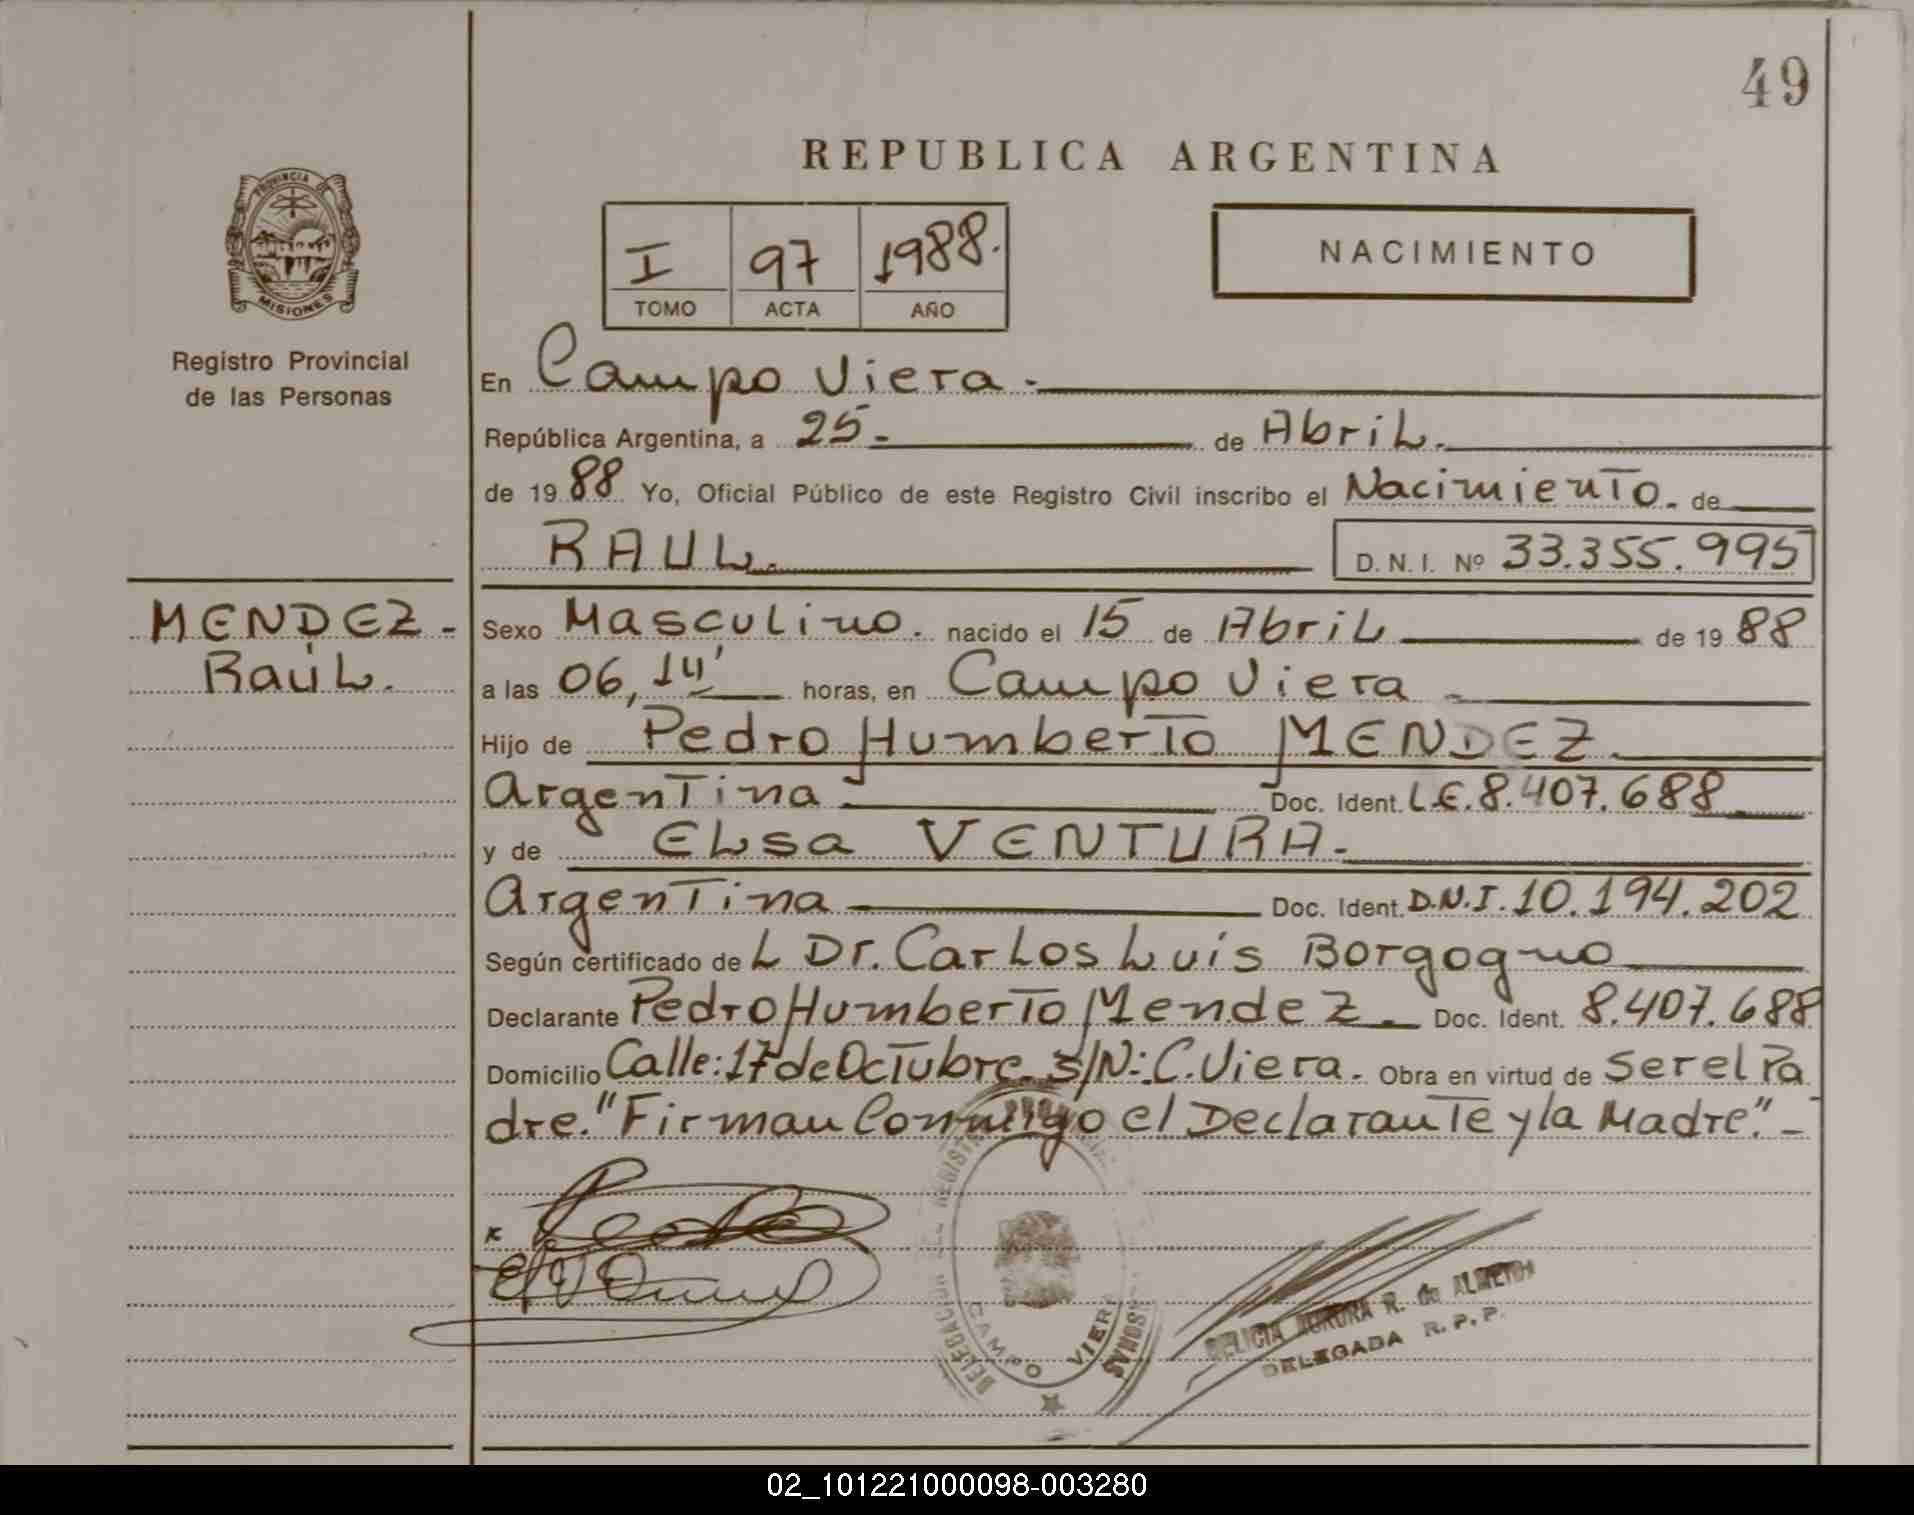 49
REPUBLICA ARGENTINA
PROVINCIA DE
MISIONES
Registro Provincial
de las Personas
I 97 1988.
TOMO ACTA AÑO
NACIMIENTO
En Campo Viera.
República Argentina, a 25 de Abril.
de 1988 Yo, Oficial Público de este Registro Civil inscribo el Nacimiento. de
RAUL. D. N. I. Nº 33.355.995
MENDEZ
Raúl.
Sexo Masculino. nacido el 15 de Abril de 1988
a las 06,14' horas, en Campo Viera
Hijo de Pedro Humberto MENDEZ
Argentina Doc. Ident. L.E. 8.407.688
y de ELsa VENTURA.
Argentina Doc. Ident. D.N.I. 10.194.202
Según certificado de L Dr. Carlos Luis Borgogno
Declarante Pedro Humberto Mendez. Doc. Ident. 8.407.688
Domicilio Calle: 17 de Octubre S/N: C. Viera. Obra en virtud de Ser el Pa
dre. "Firman Conmigo el Declarante y la Madre".-
CAMPO VIERA
R. de ALMEIDA
DELEGADA R. P. P.
02_101221000098-003280